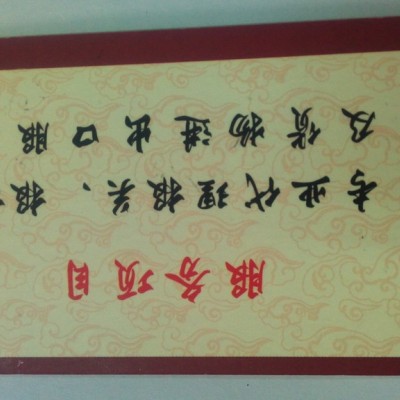 服务项目
专业代理报关、报
及货物进出口服